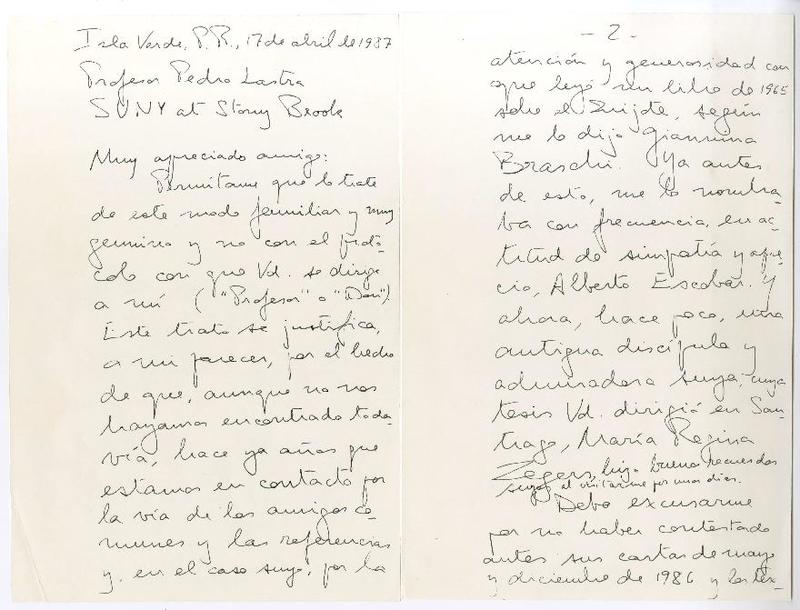 Isla Verde, P.R., 17 de abril de 1987
Profesor Pedro Lastra
SUNY at Stony Brook
Muy apreciado amigo:
Permítame que lo trate
de este modo familiar y muy
genuino y no con el proto-
colo con que Vd. se dirige
a mí ("Profesor" o "Don").
Este trato se justifica,
a mi parecer, por el hecho
de que, aunque no nos
hayamos encontrado toda-
vía, hace ya años que
estamos en contacto por
la vía de los amigos co-
munes y las referencias
y, en el caso suyo, por la
- 2 -
atención y generosidad con
que leyó un libro de 1965
sobre el Quijote, según
me lo dijo Giannina
Braschi. Ya antes
de esto, me lo nombra-
ba con frecuencia, en ac-
titud de simpatía y apre-
cio, Alberto Escobar. Y
ahora, hace poco, una
antigua discípula y
admiradora suya, cuya
tesis Vd. dirigió en San-
tiago, María Regina
Zegers, hizo buenos recuerdos
suyos al visitarme por unos días.
Debo excusarme
por no haber contestado
antes sus cartas de mayo
y diciembre de 1986 y los tex-